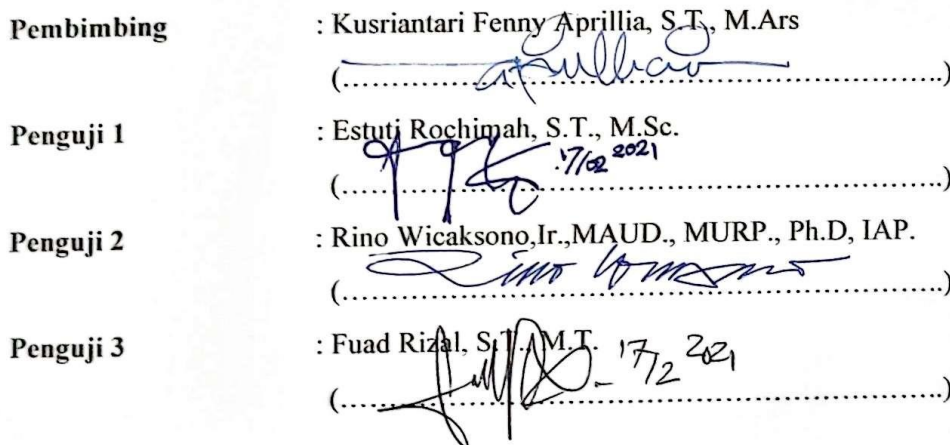 Pembimbing : Kusriantari Fenny Aprillia, S.T., M.Ars
(........................................................................................)
Penguji 1 : Estuti Rochimah, S.T., M.Sc.
17/02 2021
(........................................................................................)
Penguji 2 : Rino Wicaksono,Ir.,MAUD., MURP., Ph.D, IAP.
(........................................................................................)
Penguji 3 : Fuad Rizal, S.T., M.T.
17/2 2021
(........................................................................................)